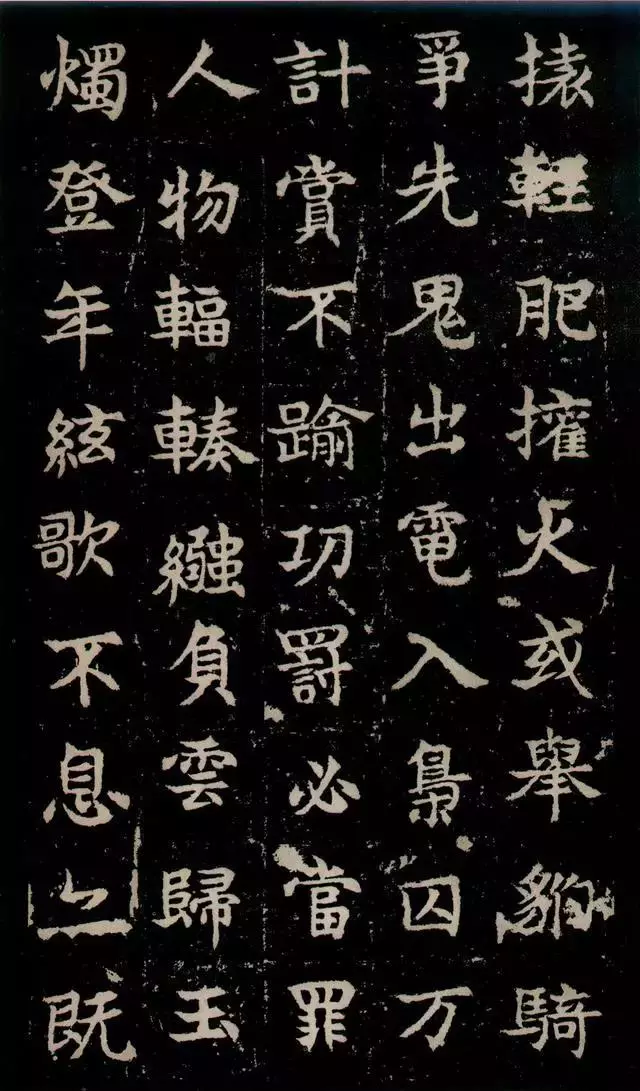 輕肥權火或舉豹騎
爭先鬼出電入梟囚万
計賞不踰功罰必當罪
人物輻輳繈負雲歸玉
燭登年絃歌不息既